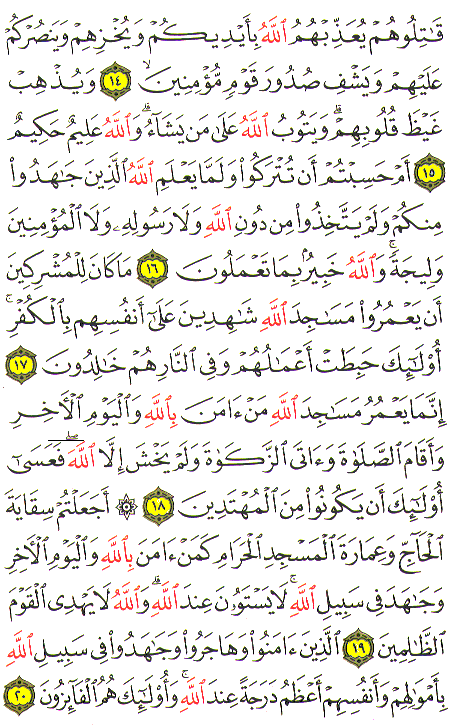 قَٰتِلُوهُمْ يُعَذِّبْهُمُ ٱللَّهُ بِأَيْدِيكُمْ وَيُخْزِهِمْ وَيَنصُرْكُمْ
عَلَيْهِمْ وَيَشْفِ صُدُورَ قَوْمٍ مُّؤْمِنِينَ ۙ ١٤ وَيُذْهِبْ
غَيْظَ قُلُوبِهِمْ ۗ وَيَتُوبُ ٱللَّهُ عَلَىٰ مَن يَشَآءُ ۗ وَٱللَّهُ عَلِيمٌ حَكِيمٌ
١٥ أَمْ حَسِبْتُمْ أَن تُتْرَكُوا۟ وَلَمَّا يَعْلَمِ ٱللَّهُ ٱلَّذِينَ جَٰهَدُوا۟
مِنكُمْ وَلَمْ يَتَّخِذُوا۟ مِن دُونِ ٱللَّهِ وَلَا رَسُولِهِۦ وَلَا ٱلْمُؤْمِنِينَ
وَلِيجَةً ۚ وَٱللَّهُ خَبِيرٌۢ بِمَا تَعْمَلُونَ ١٦ مَا كَانَ لِلْمُشْرِكِينَ
أَن يَعْمُرُوا۟ مَسَٰجِدَ ٱللَّهِ شَٰهِدِينَ عَلَىٰٓ أَنفُسِهِم بِٱلْكُفْرِ ۚ
أُو۟لَٰٓئِكَ حَبِطَتْ أَعْمَٰلُهُمْ وَفِى ٱلنَّارِ هُمْ خَٰلِدُونَ ١٧
إِنَّمَا يَعْمُرُ مَسَٰجِدَ ٱللَّهِ مَنْ ءَامَنَ بِٱللَّهِ وَٱلْيَوْمِ ٱلْءَاخِرِ
وَأَقَامَ ٱلصَّلَوٰةَ وَءَاتَى ٱلزَّكَوٰةَ وَلَمْ يَخْشَ إِلَّا ٱللَّهَ ۖ فَعَسَىٰٓ
أُو۟لَٰٓئِكَ أَن يَكُونُوا۟ مِنَ ٱلْمُهْتَدِينَ ١٨ ۞ أَجَعَلْتُمْ سِقَايَةَ
ٱلْحَآجِّ وَعِمَارَةَ ٱلْمَسْجِدِ ٱلْحَرَامِ كَمَنْ ءَامَنَ بِٱللَّهِ وَٱلْيَوْمِ ٱلْءَاخِرِ
وَجَٰهَدَ فِى سَبِيلِ ٱللَّهِ ۚ لَا يَسْتَوُۥنَ عِندَ ٱللَّهِ ۗ وَٱللَّهُ لَا يَهْدِى ٱلْقَوْمَ
ٱلظَّٰلِمِينَ ١٩ ٱلَّذِينَ ءَامَنُوا۟ وَهَاجَرُوا۟ وَجَٰهَدُوا۟ فِى سَبِيلِ ٱللَّهِ
بِأَمْوَٰلِهِمْ وَأَنفُسِهِمْ أَعْظَمُ دَرَجَةً عِندَ ٱللَّهِ ۚ وَأُو۟لَٰٓئِكَ هُمُ ٱلْفَآئِزُونَ ٢٠